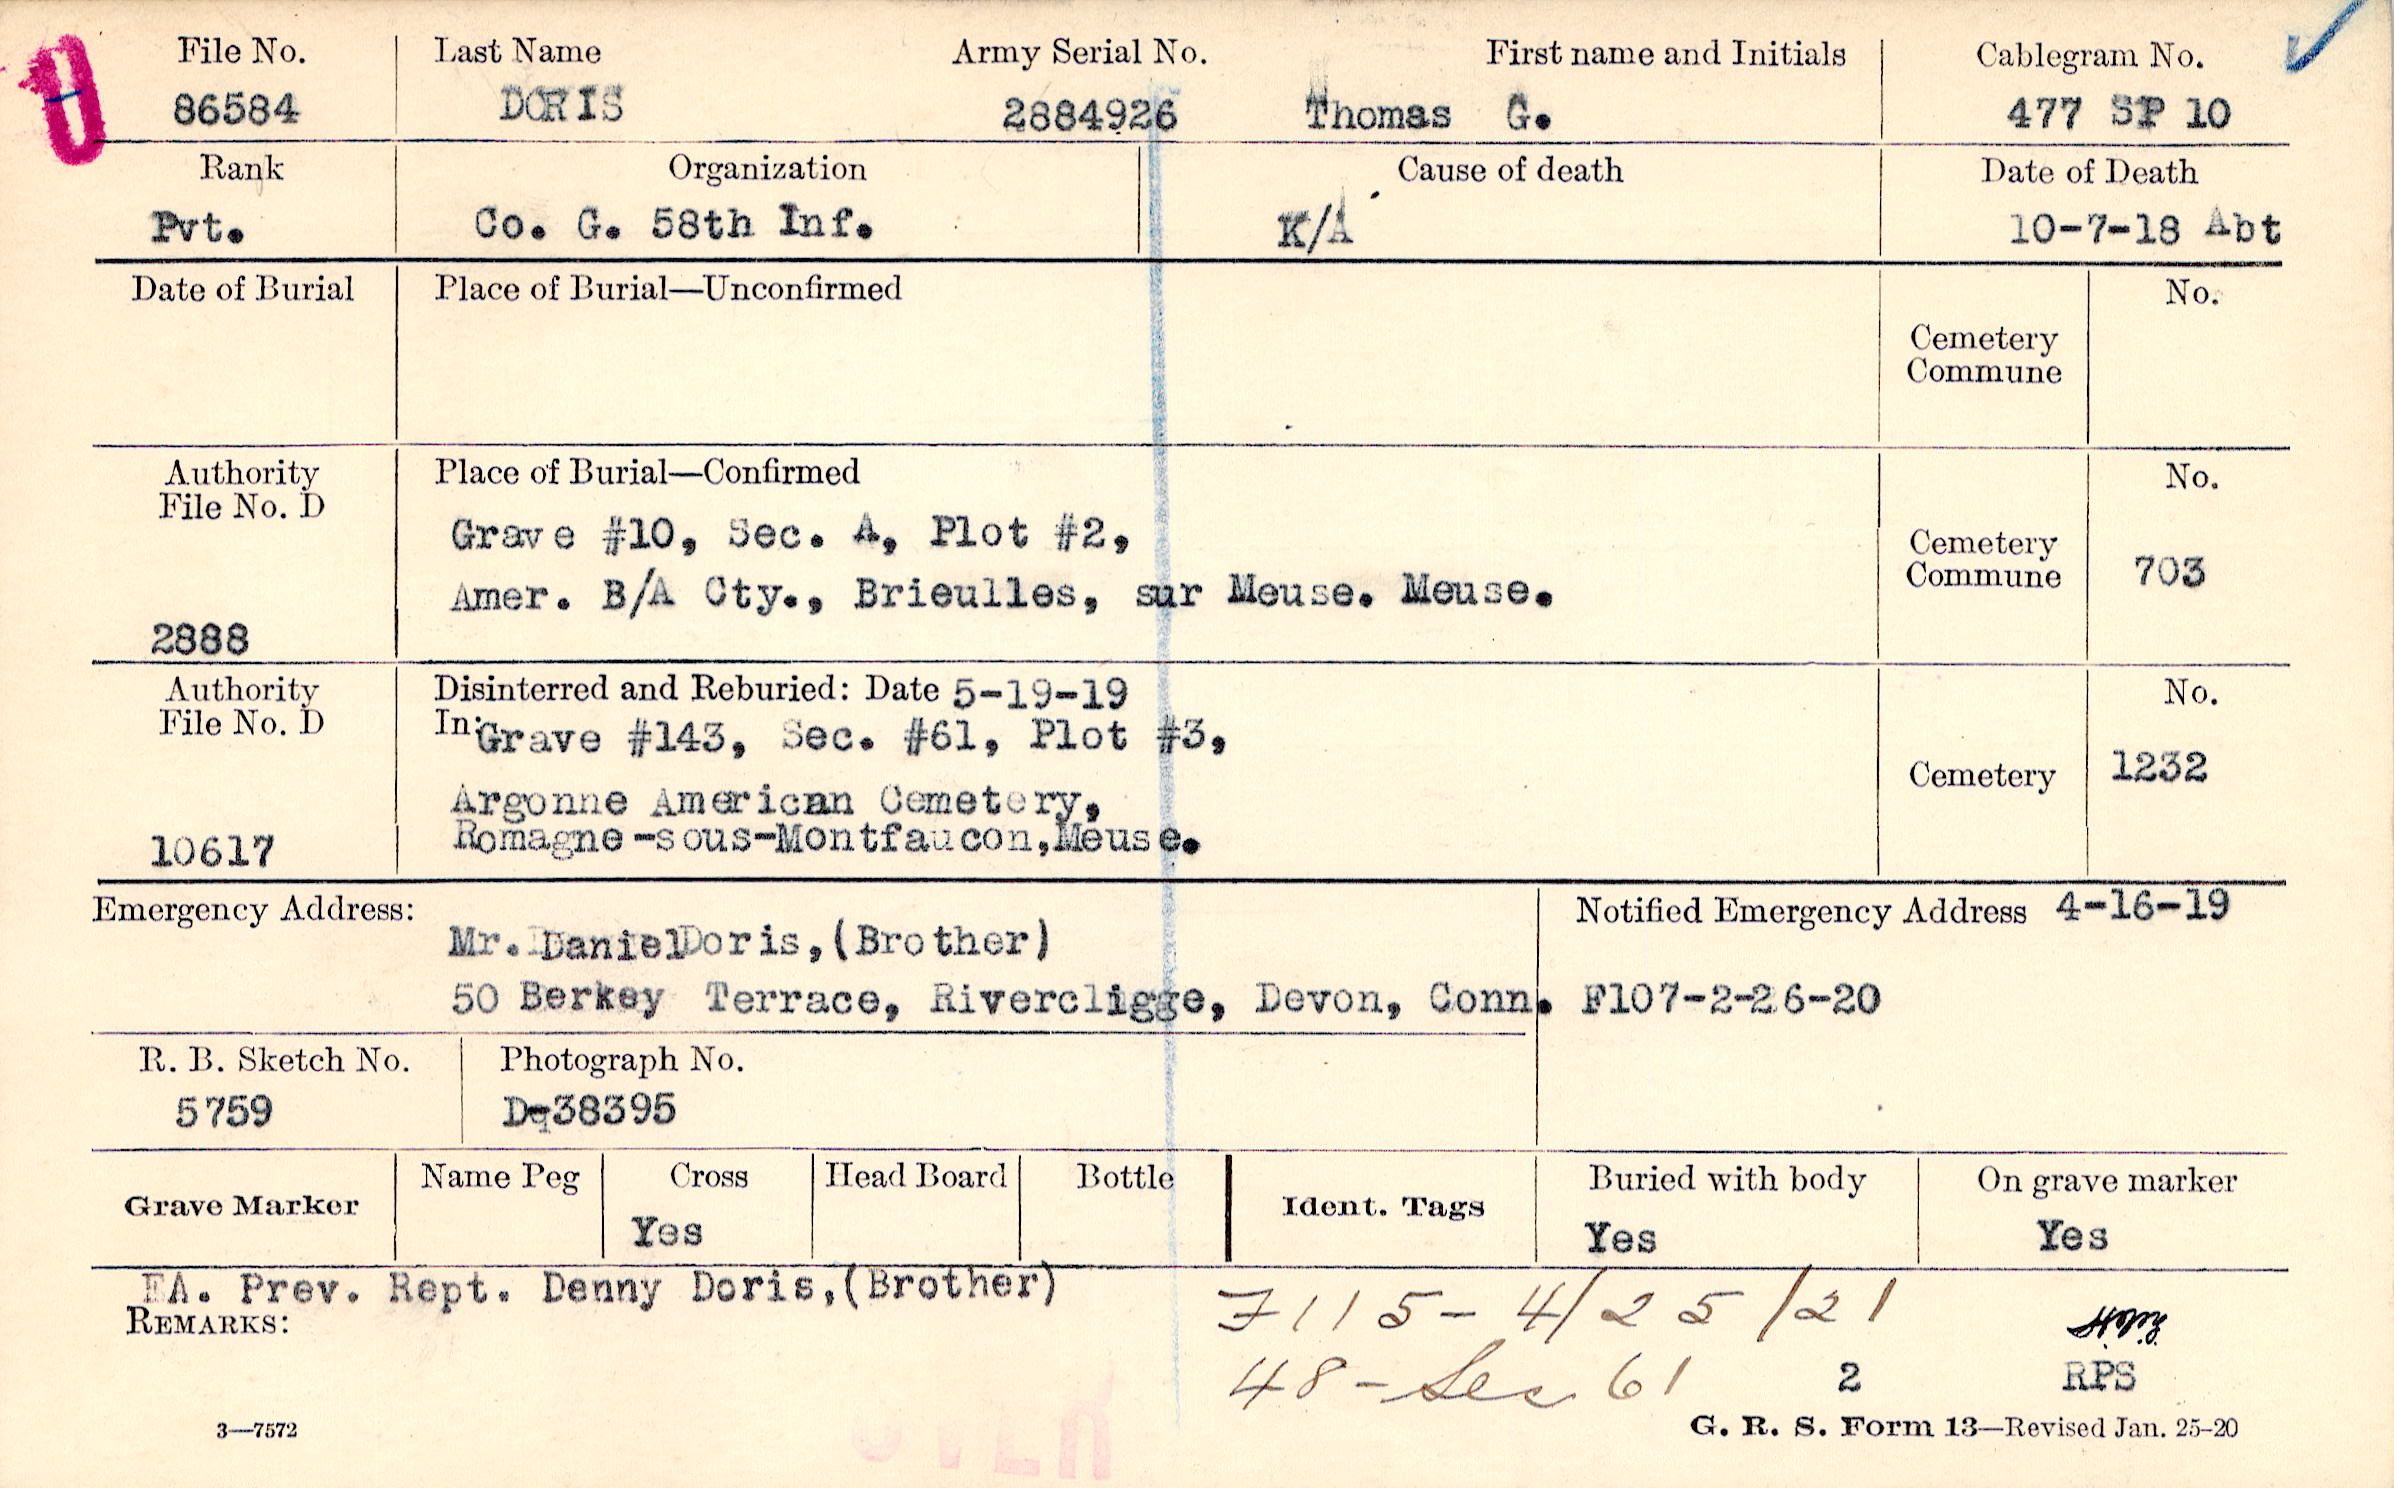 File No. Last Name Army Serial No. First name and Initials Cablegram No.
86584 DORIS 2884926 Thomas G. 477 SP 10
Rank Organization Cause of death Date of Death
Pvt. Co. G. 58th Inf. K/A 10-7-18 Abt
Date of Burial Place of Burial—Unconfirmed No.
Cemetery
Commune
Authority Place of Burial—Confirmed No.
File No. D
Grave #10, Sec. A, Plot #2,
Cemetery
Commune 703
Amer. B/A Cty., Brieulles, sur Meuse. Meuse.
2888
Authority Disinterred and Reburied: Date 5-19-19 No.
File No. D In: Grave #143, Sec. #61, Plot #3,
Cemetery 1232
Argonne American Cemetery,
10617 Romagne-sous-Montfaucon,Meuse.
Emergency Address: Notified Emergency Address 4-16-19
Mr. Daniel Doris,(Brother)
50 Berkey Terrace, Rivercligge, Devon, Conn. F107-2-26-20
R. B. Sketch No. Photograph No.
5759 D-38395
Grave Marker Name Peg Cross Head Board Bottle Ident. Tags Buried with body On grave marker
Yes Yes Yes
EA. Prev. Rept. Denny Doris,(Brother)
REMARKS: F115-4/25/21
48-Sec 61 2 RPS
3—7572 G. R. S. Form 13—Revised Jan. 25-20